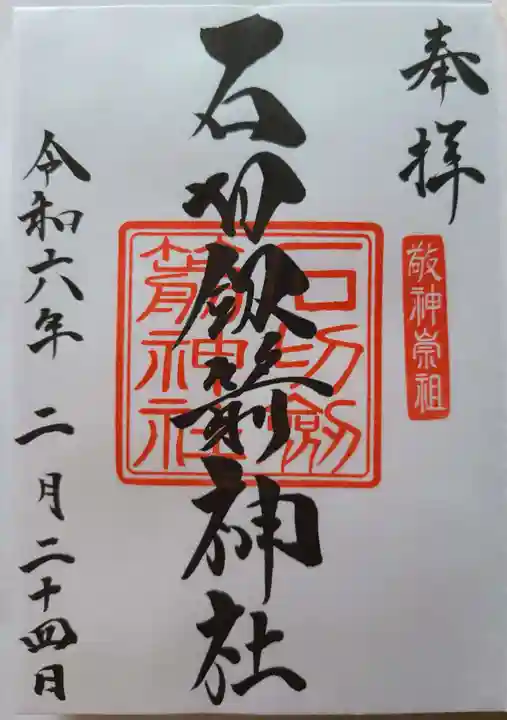 奉拝
敬神崇祖
石切釼箭神社
石切劔
箭神社
令和六年 二月二十四日